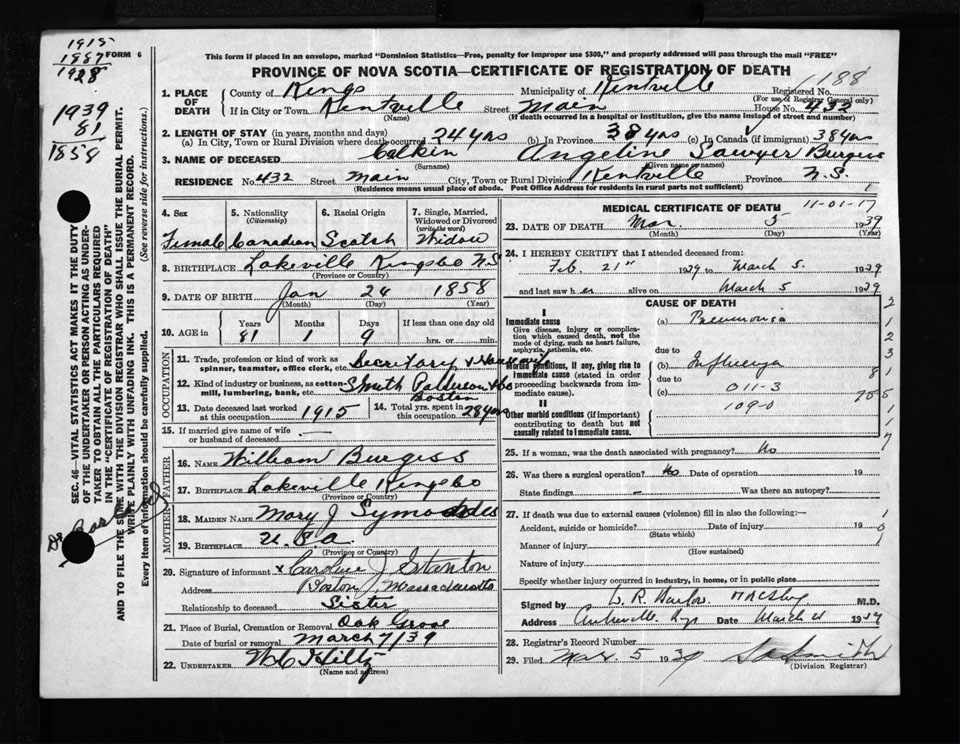 1915
1887
1928
1939
81
1858
FORM 6
This form if placed in an envelope, marked "Dominion Statistics—Free, penalty for improper use $300," and properly addressed will pass through the mail "FREE"
PROVINCE OF NOVA SCOTIA—CERTIFICATE OF REGISTRATION OF DEATH
1188
1. PLACE OF DEATH County of Kings Municipality of Kentville Registered No.
(For use of Registrar General only)
If in City or Town Kentville Street Main House No. 432
(Name) (If death occurred in a hospital or institution, give the name instead of street and number)
2. LENGTH OF STAY (in years, months and days)
(a) In City, Town or Rural Division where death occurred 24 yrs (b) In Province 38 yrs (c) In Canada (if immigrant) 38 yrs
3. NAME OF DECEASED Calkin Angeline Sawyer Burgess
(Surname) (Given name or names)
RESIDENCE No. 432 Street Main City, Town or Rural Division Kentville Province N.S.
(Residence means usual place of abode. Post Office Address for residents in rural parts not sufficient)
4. Sex Female
5. Nationality (Citizenship) Canadian
6. Racial Origin Scotch
7. Single, Married, Widowed or Divorced (write the word) Widow
8. BIRTHPLACE Lakeville Kings Co N.S
(Province or Country)
9. DATE OF BIRTH Jan 24 1858
(Month) (Day) (Year)
10. AGE in Years Months Days If less than one day old
81 1 9 hrs. or min.
OCCUPATION
11. Trade, profession or kind of work as spinner, teamster, office clerk, etc. Secretary & Housewife
12. Kind of industry or business, as cotton mill, lumbering, bank, etc. Smith Patterson & Co Boston
13. Date deceased last worked at this occupation 1915
14. Total yrs. spent in this occupation 28 yrs
15. If married give name of wife or husband of deceased —
FATHER
16. NAME William Burgess
17. BIRTHPLACE Lakeville Kings Co
(Province or Country)
MOTHER
18. MAIDEN NAME Mary J
19. BIRTHPLACE U.S.A.
(Province or Country)
20. Signature of informant x Caroline J Stanton
Address Boston, Massachusetts
Relationship to deceased Sister
21. Place of Burial, Cremation or Removal Oak Grove
Date of burial or removal March 7/39
22. UNDERTAKER
(Name and address)
MEDICAL CERTIFICATE OF DEATH 11-01-17
23. DATE OF DEATH Mar 5 1939
(Month) (Day) (Year)
24. I HEREBY CERTIFY that I attended deceased from:
Feb. 21st 1939 to March 5. 1939
and last saw her alive on March 5 1939
CAUSE OF DEATH
I
Immediate cause
Give disease, injury or complication which caused death, not the mode of dying, such as heart failure, asphyxia, asthenia, etc.
(a) Pneumonia
due to
Morbid conditions, if any, giving rise to immediate cause (stated in order proceeding backwards from immediate cause).
(b) Influenza
due to
(c) 011-3
109-0
II
Other morbid conditions (if important) contributing to death but not causally related to immediate cause.
25. If a woman, was the death associated with pregnancy? No
26. Was there a surgical operation? No Date of operation 19
State findings — Was there an autopsy?
27. If death was due to external causes (violence) fill in also the following:—
Accident, suicide or homicide? Date of injury 19
(State which)
Manner of injury
(How sustained)
Nature of injury
Specify whether injury occurred in industry, in home, or in public place
Signed by M.D.
Address Date March 1939
28. Registrar's Record Number
29. Filed Mar 5 1939 Smith
(Division Registrar)
SEC. 46—VITAL STATISTICS ACT MAKES IT THE DUTY
OF THE UNDERTAKER OR PERSON ACTING AS UNDERTAKER
TO OBTAIN ALL THE PARTICULARS REQUIRED
IN THE "CERTIFICATE OF REGISTRATION OF DEATH"
AND TO FILE THE SAME WITH THE DIVISION REGISTRAR WHO SHALL ISSUE THE BURIAL PERMIT.
WRITE PLAINLY WITH UNFADING INK. THIS IS A PERMANENT RECORD.
Every item of information should be carefully supplied. (See reverse side for instructions.)